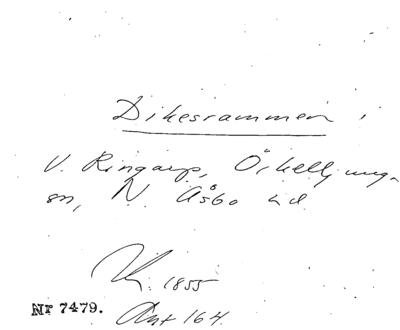 Dikesrammen i
V. Ringarp, Örkelljunga
sn, N. Åsbo hd
1855
Nr 7479.
Ant 164.